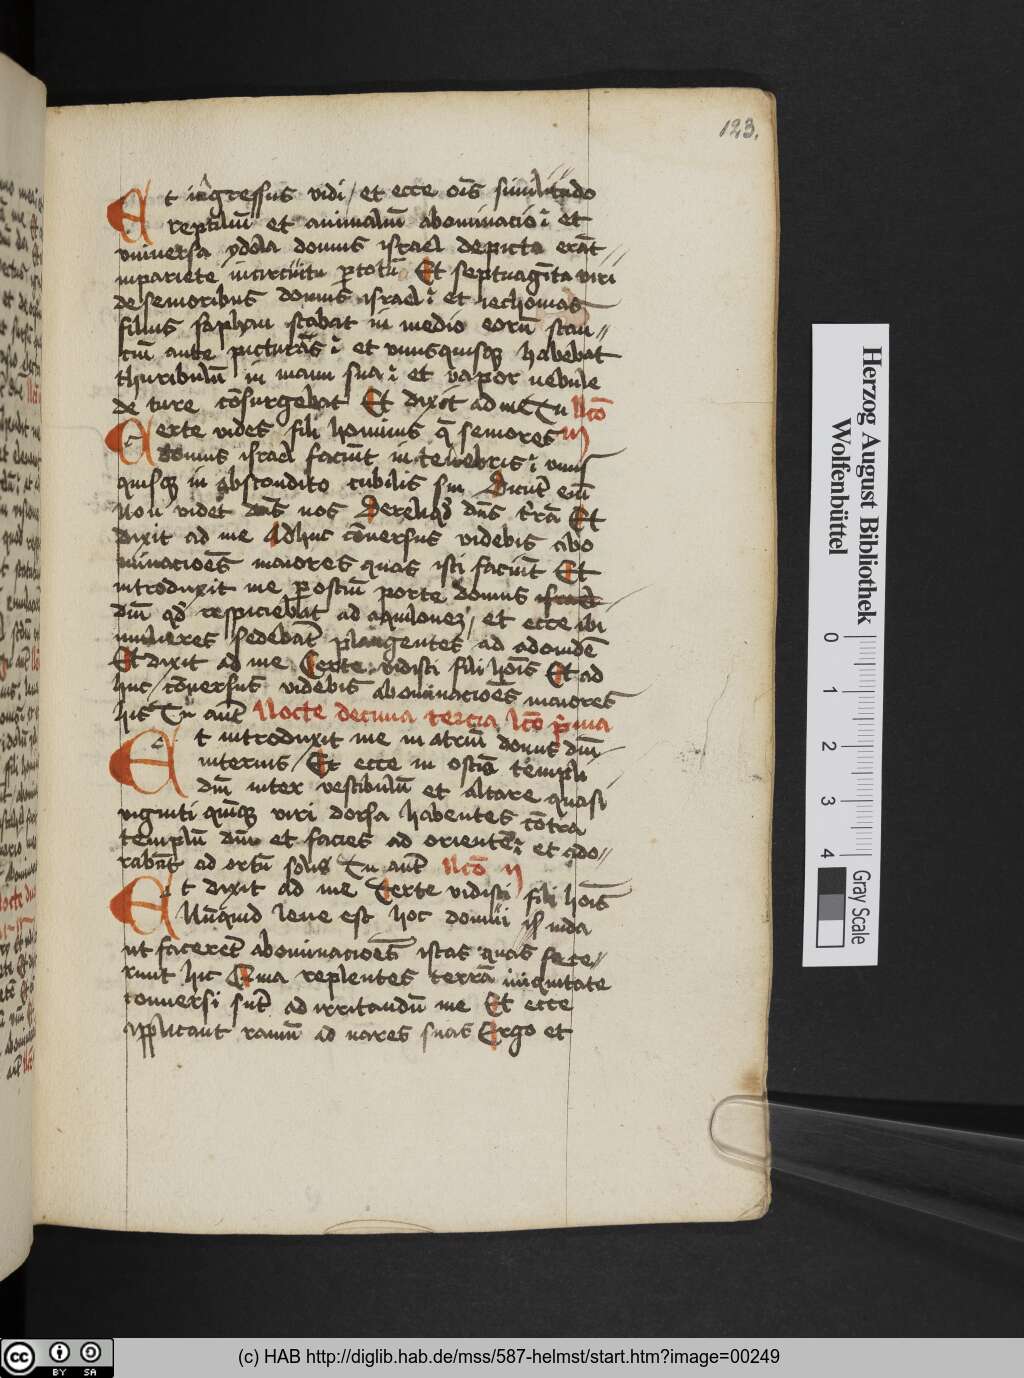 123.
Et ingressus vidi / et ecce oīs similitudo
reptiliū et animaliū abominacio ⁊ et
vniuersa ydola domus israel depicta erāt
in pariete in circuitu p totū Et septuagīta viri
de senioribus domus israel ⁊ et iechonias
filius saphan stabat in medio eorū stan //
ciū ante picturas ⁊ et vnusquisqȝ habebat
thuribulū in manu sua ⁊ et vapor nebule
de ture cōsurgebat Et dixit ad me Tu lcō
Certe vides fili hominis q̄ seniores iij
domus israel faciūt in tenebris ⁊ vnus
quisqȝ in abscondito cubilis sui Dicūt eīm
Non videt dn̄s nos Dereliqͥt dn̄s t'rā Et
dixit ad me Adhuc cōuersus videbis abo
minacioēs maiores quas isti faciūt Et
introduxit me p ostiū porte domus israel
dn̄i qd respiciebat ad aquilonē / et ecce ibi
mulieres sedebāt plangentes ad adonidē
Et dixit ad me Certe vidisti fili hoīs Et ad
huc / cōuersus videbis abominacioēs maiores
his Tu aūt Nocte decima tercia lcō pͥma
Et introduxit me in atriū domus dn̄i
interius / Et ecce in ostio templi
dn̄i inter vestibulū et altare quasi
viginti quīqȝ viri dorsa habentes cōtra
templū dn̄i et facies ad orientē ⁊ et ado //
rabāt ad ortū solis Tu aūt lcō ij
Et dixit ad me Certe vidisti fili hoīs
Nūquid leue est hoc domui isl iuda
ut facerēt abominacioēs istas quas fece //
runt hic Quia replentes terrā iniquitate
conuersi sūt ad irritandū me Et ecce
applicant ramū ad nares suas Ergo et
Herzog August Bibliothek
Wolfenbüttel
0 1 2 3 4
Gray Scale
cc BY SA
(c) HAB http://diglib.hab.de/mss/587-helmst/start.htm?image=00249